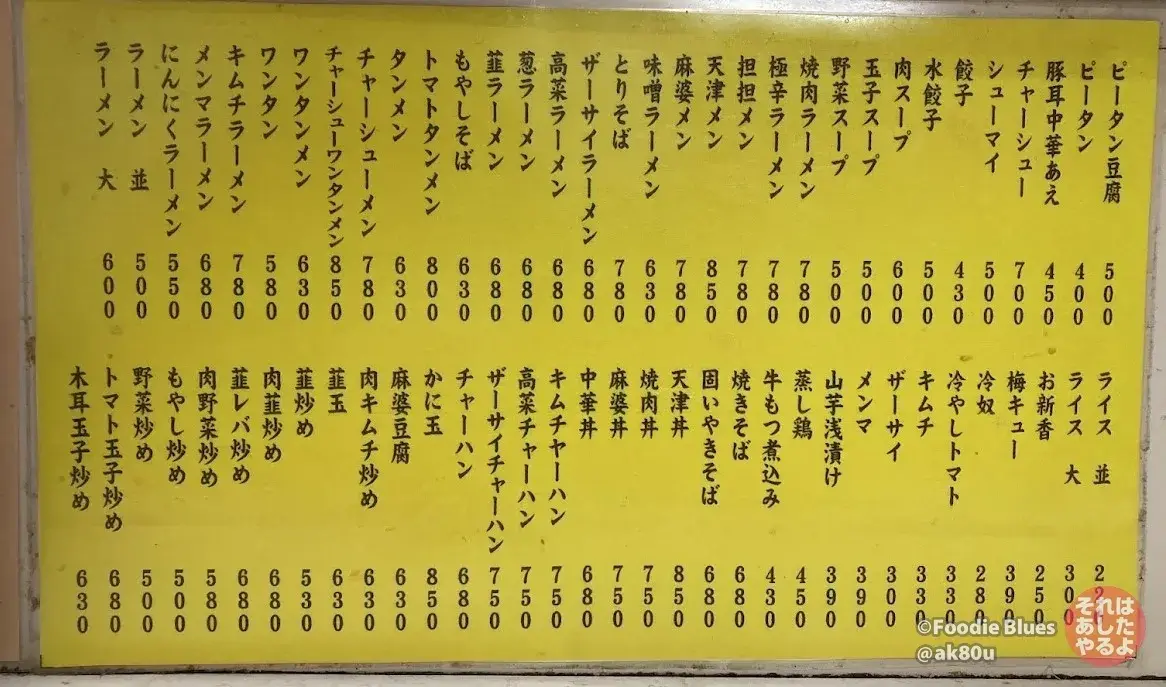 ピータン豆腐 500
ピータン 400
豚耳中華あえ 450
チャーシュー 700
シューマイ 500
餃子 430
水餃子 500
肉スープ 600
玉子スープ 500
野菜スープ 500
焼肉ラーメン 780
極辛ラーメン 780
担担メン 780
天津メン 850
麻婆メン 780
味噌ラーメン 630
とりそば 780
ザーサイラーメン 680
高菜ラーメン 680
葱ラーメン 680
韮ラーメン 680
もやしそば 630
トマトタンメン 800
タンメン 630
チャーシューメン 780
チャーシューワンタンメン 850
ワンタンメン 630
ワンタン 580
キムチラーメン 780
メンマラーメン 680
にんにくラーメン 550
ラーメン 並 500
ラーメン 大 600
ライス 並
ライス 大 300
お新香 250
梅キュー 390
冷奴 280
冷やしトマト 330
キムチ 330
ザーサイ 300
メンマ 390
山芋浅漬け 390
蒸し鶏 450
牛もつ煮込み 430
焼きそば 680
固いやきそば 680
天津丼 850
焼肉丼 750
麻婆丼 750
中華丼 680
キムチャーハン 750
高菜チャーハン 750
ザーサイチャーハン 750
チャーハン 680
かに玉 850
麻婆豆腐 630
肉キムチ炒め 630
韮玉 630
韮炒め 530
肉韮炒め 680
韮レバ炒め 680
肉野菜炒め 580
もやし炒め 500
野菜炒め 500
トマト玉子炒め 680
木耳玉子炒め 630
©Foodie Blues
@ak80u
それは
あした
やるよ